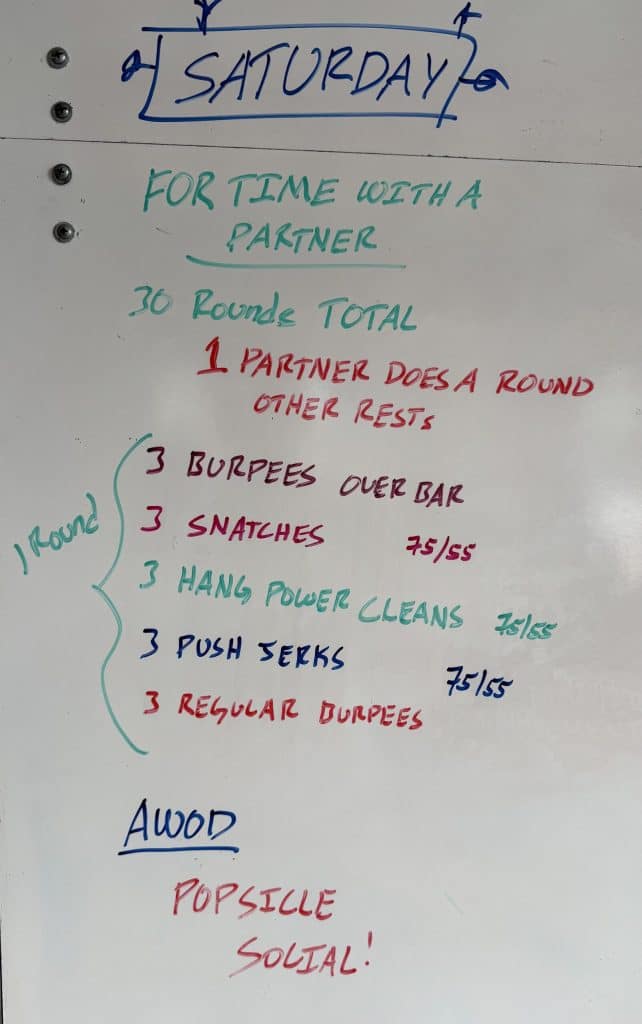 SATURDAY
FOR TIME WITH A
PARTNER
30 Rounds TOTAL
1 PARTNER DOES A ROUND
OTHER RESTS
1 Round
3 BURPEES OVER BAR
3 SNATCHES 75/55
3 HANG POWER CLEANS 75/55
3 PUSH JERKS 75/55
3 REGULAR BURPEES
AWOD
POPSICLLE
SOCIAL!